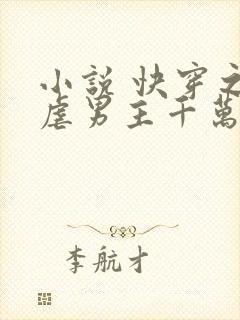 小說 快穿之
虐男主千萬
李航才